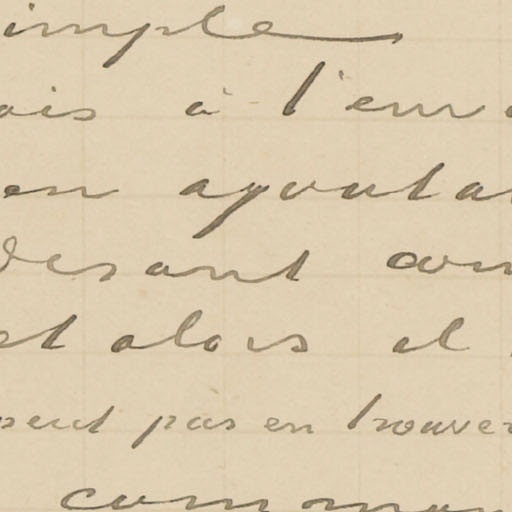 imple
ais à l'env
en ajoutа
disant com
et alors il
peut pas en trouver
comman